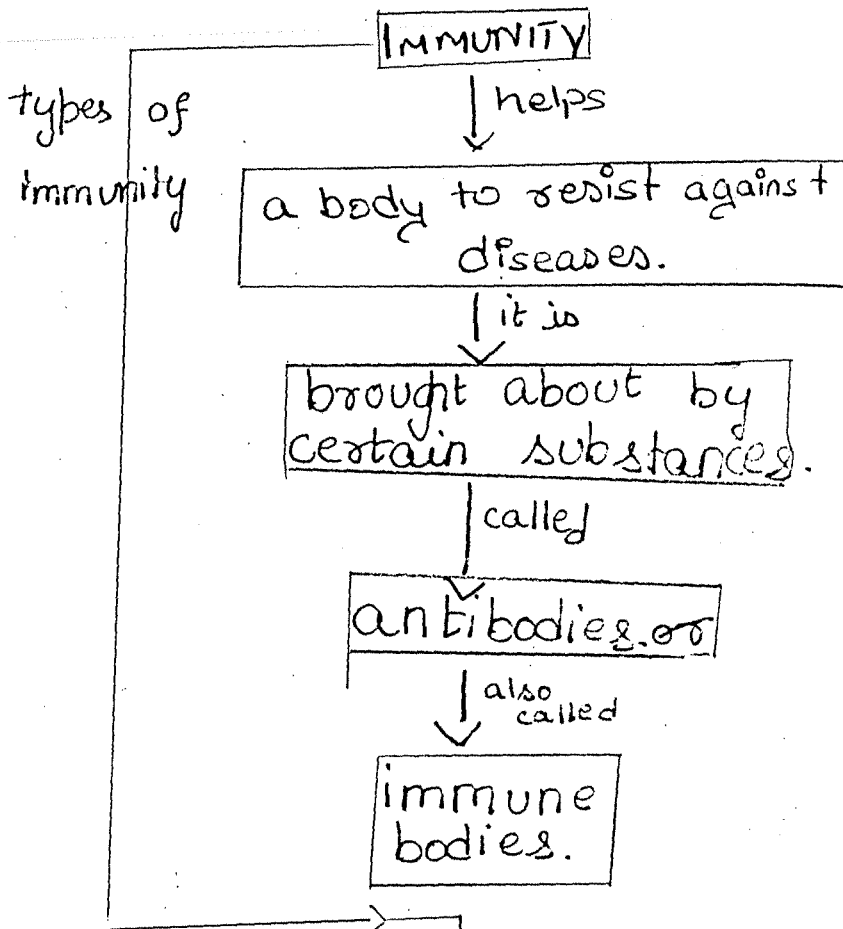 IMMUNITY
helps
types of
immunity
a body to resist against
diseases.
it is
brought about by
certain substances.
called
antibodies. or
also
called
immune
bodies.